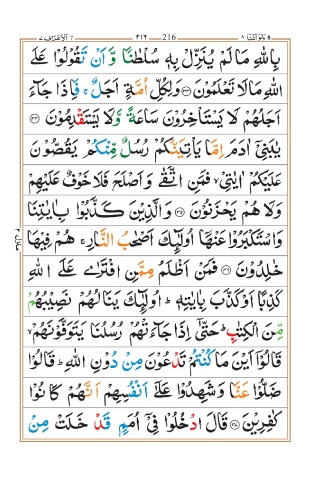 ٨ ولواننا ٨ 216 ٢١٦ الاعراف ٧
بِاللّٰهِ مَا لَمْ يُنَزِّلْ بِهٖ سُلْطٰنًا وَّاَنْ تَقُوْلُوْا عَلَى
اللّٰهِ مَا لَا تَعْلَمُوْنَ ﴿٣٣﴾ وَلِكُلِّ اُمَّةٍ اَجَلٌ ۚ فَاِذَا جَآءَ
اَجَلُهُمْ لَا يَسْتَاْخِرُوْنَ سَاعَةً وَّلَا يَسْتَقْدِمُوْنَ ﴿٣٤﴾
يٰبَنِيْٓ اٰدَمَ اِمَّا يَاْتِيَنَّكُمْ رُسُلٌ مِّنْكُمْ يَقُصُّوْنَ
عَلَيْكُمْ اٰيٰتِيْ ۙ فَمَنِ اتَّقٰى وَاَصْلَحَ فَلَا خَوْفٌ عَلَيْهِمْ
وَلَا هُمْ يَحْزَنُوْنَ ﴿٣٥﴾ وَالَّذِيْنَ كَذَّبُوْا بِاٰيٰتِنَا
وَاسْتَكْبَرُوْا عَنْهَآ اُولٰٓئِكَ اَصْحٰبُ النَّارِ ۚ هُمْ فِيْهَا
خٰلِدُوْنَ ﴿٣٦﴾ فَمَنْ اَظْلَمُ مِمَّنِ افْتَرٰى عَلَى اللّٰهِ
كَذِبًا اَوْ كَذَّبَ بِاٰيٰتِهٖ ؕ اُولٰٓئِكَ يَنَالُهُمْ نَصِيْبُهُمْ
مِّنَ الْكِتٰبِ ؕ حَتّٰٓى اِذَا جَآءَتْهُمْ رُسُلُنَا يَتَوَفَّوْنَهُمْ ۙ
قَالُوْٓا اَيْنَ مَا كُنْتُمْ تَدْعُوْنَ مِنْ دُوْنِ اللّٰهِ ؕ قَالُوْا
ضَلُّوْا عَنَّا وَشَهِدُوْا عَلٰٓى اَنْفُسِهِمْ اَنَّهُمْ كَانُوْا
كٰفِرِيْنَ ﴿٣٧﴾ قَالَ ادْخُلُوْا فِيْٓ اُمَمٍ قَدْ خَلَتْ مِنْ